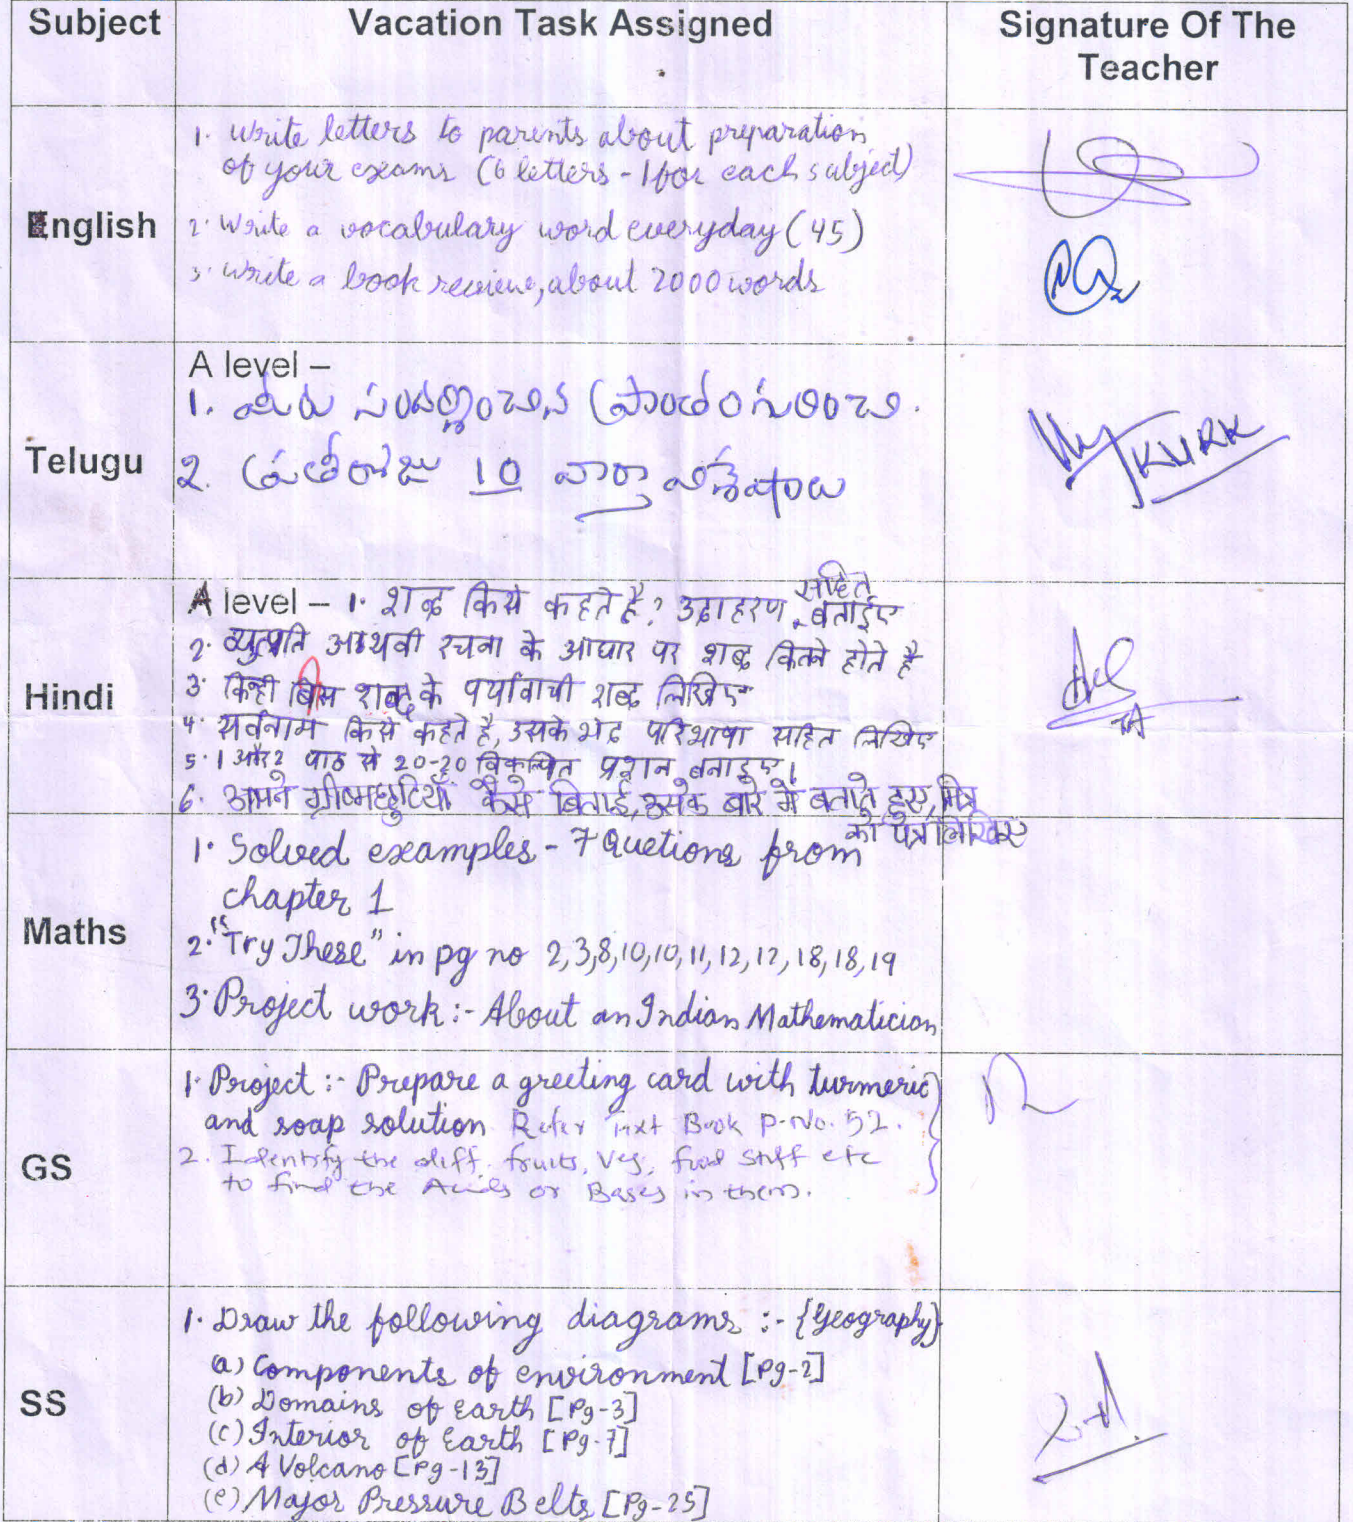 Subject Vacation Task Assigned Signature Of The
Teacher
English
1. Write letters to parents about preparation
of your exams (6 letters - 1 for each subject)
2. Write a vocabulary word everyday (45)
3. Write a book review, about 2000 words
Telugu
A level –
1. మీరు సందర్శించిన ప్రాంతం గురించి.
2. ప్రతిరోజు 10 వార్తా విశేషాలు
KVRK
Hindi
A level – 1. शब्द किसे कहते है? उदाहरण सहित बताईए
2. व्युत्पति अथवी रचना के आधार पर शब्द कितने होते है
3. किन्ही बिस शब्द के पर्यावाची शब्द लिखिए
4. सर्वनाम किसे कहते है, उसके भेद परिभाषा सहित लिखिए
5. 1 और 2 पाठ से 20-20 विकल्पित प्रशन बनाइए।
6. आपने ग्रीष्मछुटियाँ कैसे बिताई, उसके बारे में बताते हुए, मित्र
को पत्र लिखिए
Maths
1. Solved examples - 7 Quetions from
chapter 1
2. "Try These" in pg no 2,3,8,10,10,11,12,12,18,18,19
3. Project work:- About an Indian Mathematician
GS
1. Project :- Prepare a greeting card with turmeric
and soap solution Refer Text Book P.No. 52.
2. Identify the diff. fruits, veg, food stuff etc
to find the Acids or Bases in them.
SS
1. Draw the following diagrams :- {Geography}
(a) Components of environment [Pg-2]
(b) Domains of Earth [Pg-3]
(c) Interior of Earth [Pg-7]
(d) A Volcano [Pg-13]
(e) Major Pressure Belts [Pg-25]